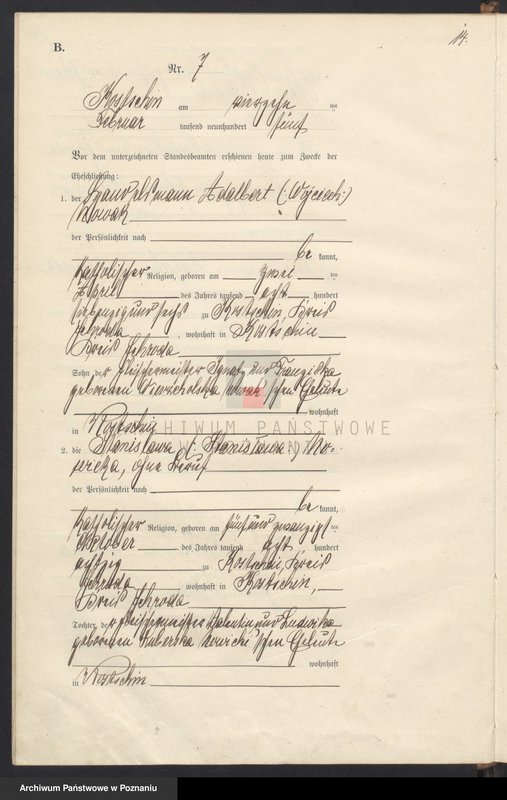 B.
14.
Nr. 7
Kostschin am vierzehn ten
Februar tausend neunhundert fünf
Vor dem unterzeichneten Standesbeamten erschienen heute zum Zwecke der
Eheschließung:
1. der Handelsmann Adalbert (: Wojciech :)
Nowak
der Persönlichkeit nach
be kannt,
katholischer Religion, geboren am zwei ten
April des Jahres tausend acht hundert
siebenzig und sechs zu Kostschin, Kreis
Schroda, wohnhaft in Kostschin
Kreis Schroda
Sohn der Ignatz und Franziska
geborenen Nowak'schen Eheleute
wohnhaft
in Kostschin
ARCHIWUM PAŃSTWOWE
W POZNANIU
2. die Stanislawa (: Stanisława :) No-
wicka, ohne Beruf
der Persönlichkeit nach
be kannt,
katholischer Religion, geboren am fünf und zwanzig ten
Oktober des Jahres tausend acht hundert
achtzig zu Kostschin, Kreis
Schroda wohnhaft in Kostschin,
Kreis Schroda
Tochter der Fleischermeister Valentin und Ludwika
geborenen Nowicki'schen Eheleute
wohnhaft
in Kostschin
Archiwum Państwowe w Poznaniu